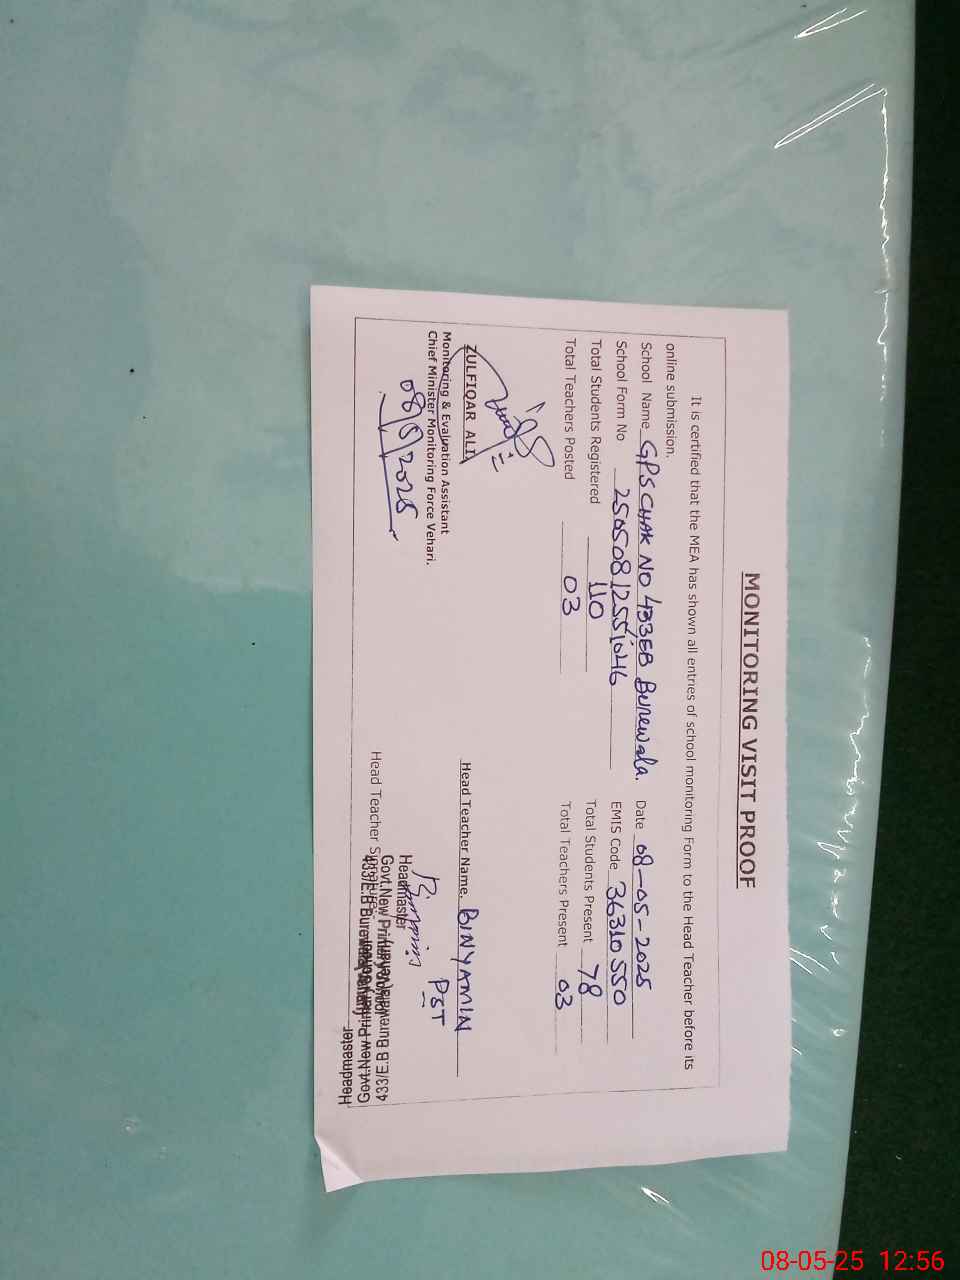 MONITORING VISIT PROOF
It is certified that the MEA has shown all entries of school monitoring Form to the Head Teacher before its
online submission.
School Name GPS CHAK NO 433EB Burewala. Date 08-05-2025
School Form No 25050812551046 EMIS Code 36310550
Total Students Registered 110 Total Students Present 78
Total Teachers Posted 03 Total Teachers Present 03
ZULFIQAR ALI
Monitoring & Evaluation Assistant
Chief Minister Monitoring Force Vehari.
08/5/2025
Head Teacher Name. BINYAMIN
PST
Head Teacher Signature:
Headmaster
Govt.New Primary School
433/E.B Burewala
Headmaster
Govt.New Primary School
433/E.B Burewala (Vehari)
08-05-25 12:56